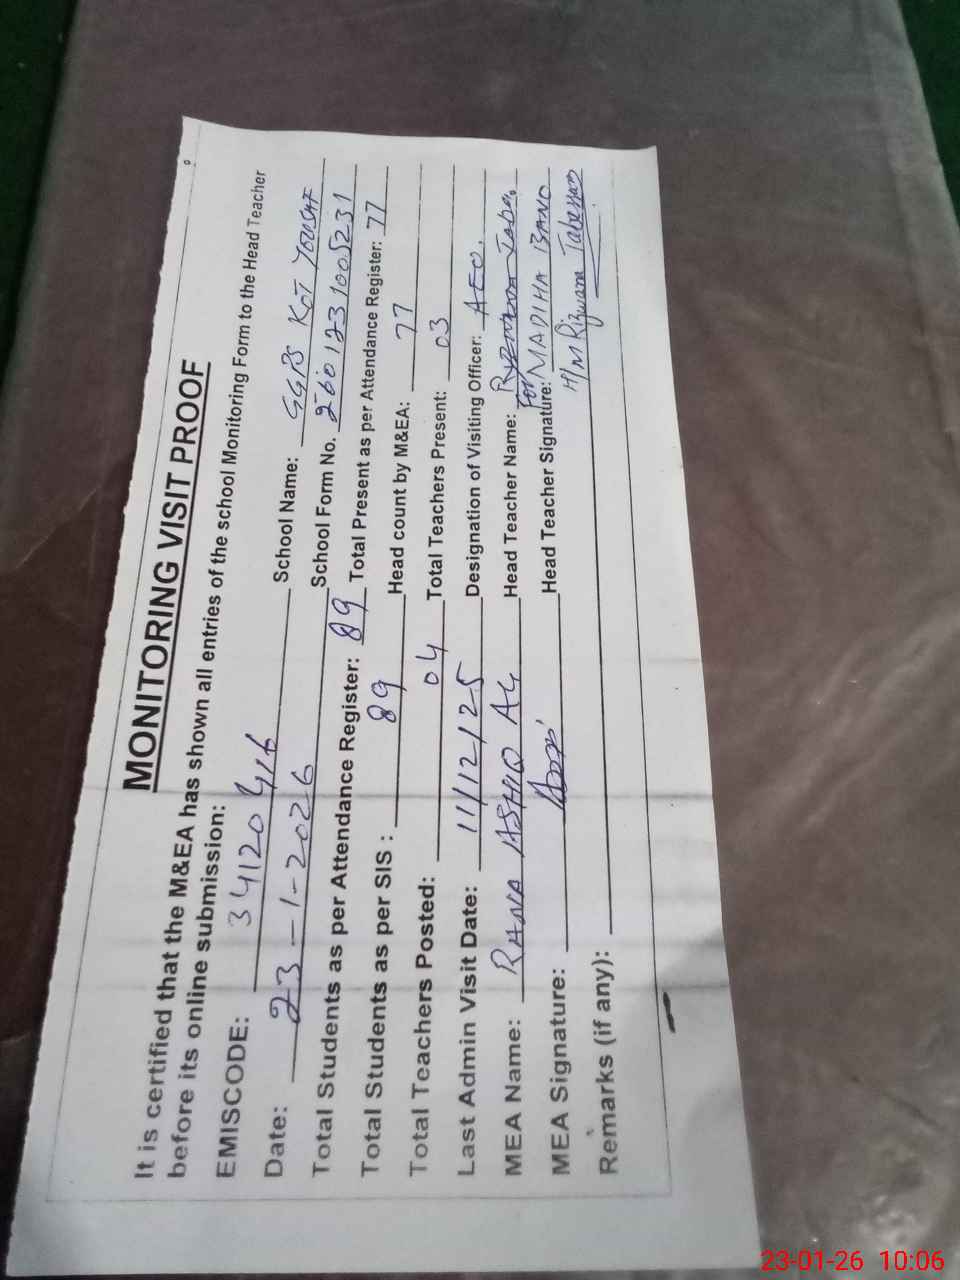 MONITORING VISIT PROOF
It is certified that the M&EA has shown all entries of the school Monitoring Form to the Head Teacher
before its online submission:
EMISCODE: 34120416 School Name: GGPS KOT YOUSAF
Date: 23-1-2026 School Form No. 2601231005231
Total Students as per Attendance Register: 89 Total Present as per Attendance Register: 77
Total Students as per SIS : 89 Head count by M&EA: 77
Total Teachers Posted: 04 Total Teachers Present: 03
Last Admin Visit Date: 11/12/25 Designation of Visiting Officer: AEO.
MEA Name: RANA ASHIQ Head Teacher Name:
For MADIHA BANO
MEA Signature: Head Teacher Signature: H/M Rizwana
Remarks (if any):
23-01-26 10:06